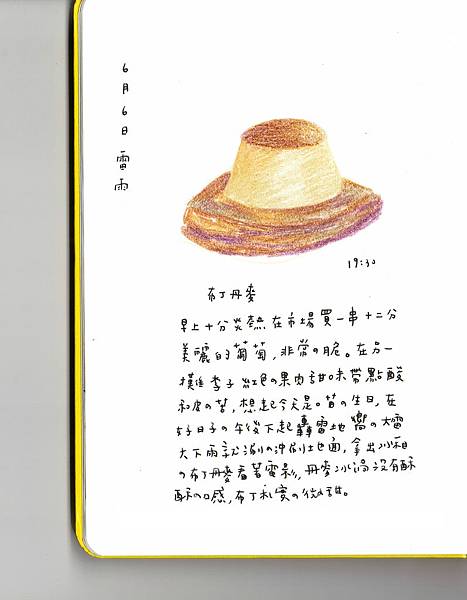 6月6日 雷雨
19:30
布丁丹麥
早上十分炎熱在市場買一串十二分
美麗的葡萄,非常の脆。在另一
攤李子紅色の果肉甜味帶點酸
和皮の苦,想起今天是 の生日,在
好日子の午後下起轟雷地嚮の大雷
大下雨 沖刷土地 面,拿出冰箱
の布丁丹麥看著電影,丹麥冰過沒有酥
酥の口感,布丁札實の微甜。